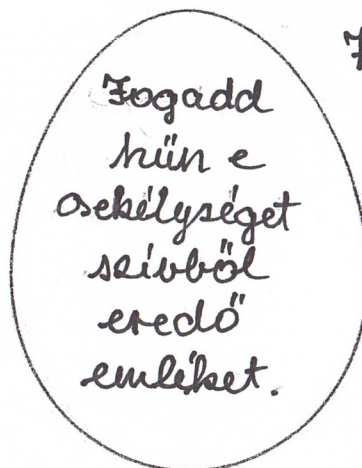 Fogadd
hün e
csekélységet
szívből
eredő
emléket.